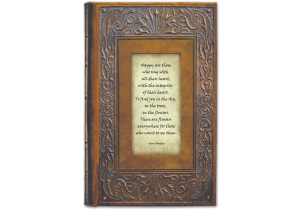 Happy are those
who sing with
all their heart,
with the integrity
of their heart.
To find joy in the sky,
in the trees,
in the flowers.
There are flowers
everywhere for those
who want to see them.